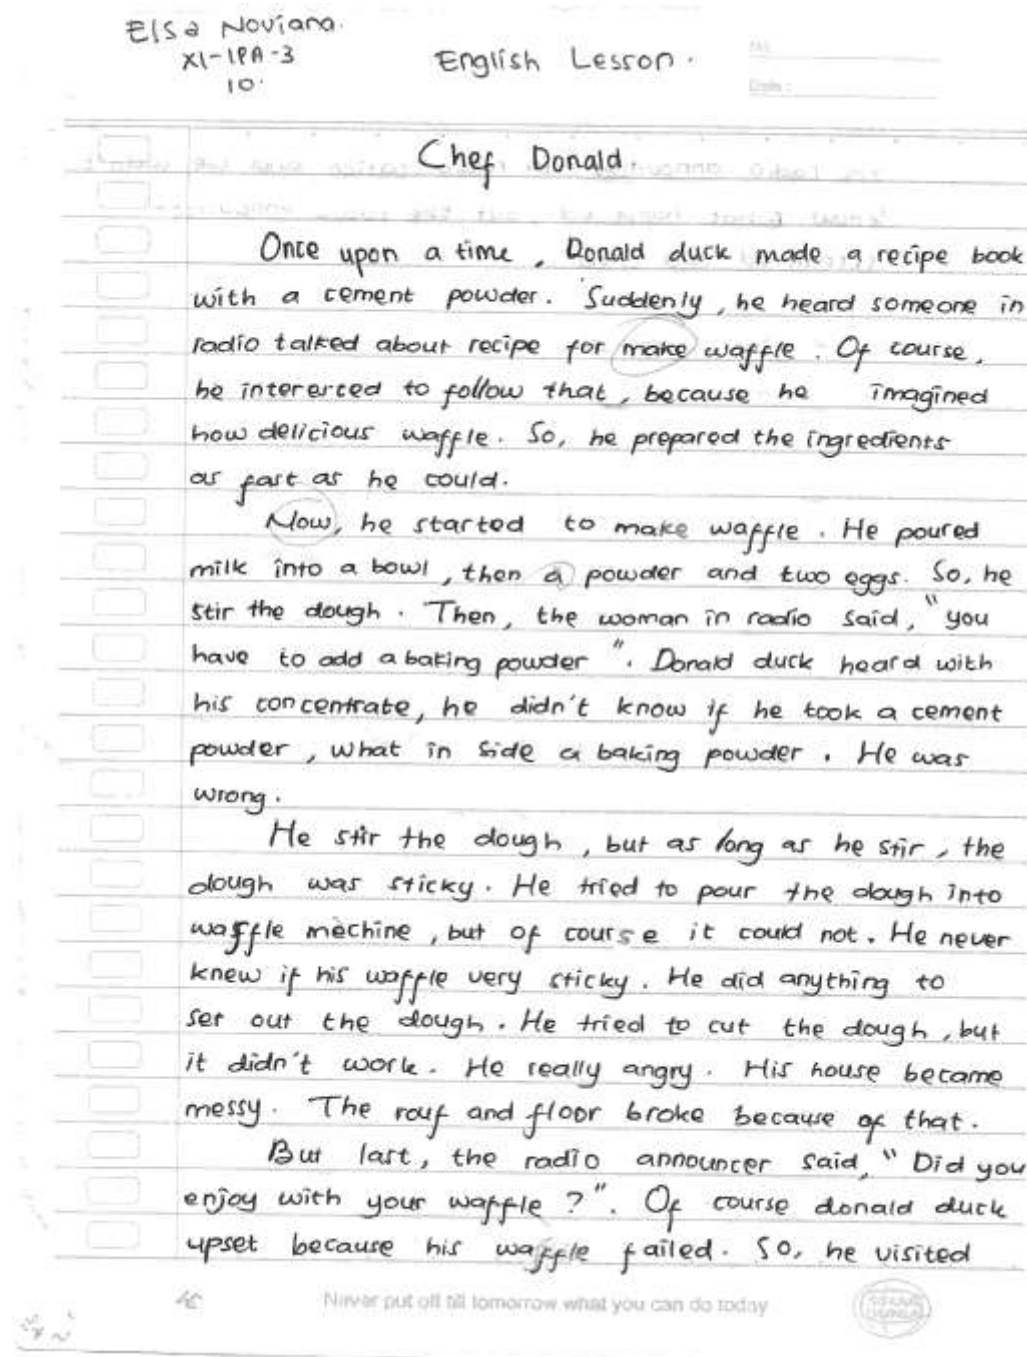 Elsa Noviana.
XI-IPA-3
10.
English Lesson.
No.
Date :
Chef Donald.
Once upon a time, Donald duck made a recipe book
with a cement powder. Suddenly, he heard someone in
radio talked about recipe for make waffle. Of course,
he interested to follow that, because he imagined
how delicious waffle. So, he prepared the ingredients
as fast as he could.
Now, he started to make waffle. He poured
milk into a bowl, then a powder and two eggs. So, he
stir the dough. Then, the woman in radio said, "you
have to add a baking powder". Donald duck heard with
his concentrate, he didn't know if he took a cement
powder, what in side a baking powder. He was
wrong.
He stir the dough, but as long as he stir, the
dough was sticky. He tried to pour the dough into
waffle mechine, but of course it could not. He never
knew if his waffle very sticky. He did anything to
set out the dough. He tried to cut the dough, but
it didn't work. He really angry. His house became
messy. The rouf and floor broke because of that.
But last, the radio announcer said, "Did you
enjoy with your waffle?". Of course donald duck
upset because his waffle failed. So, he visited
Never put off till tomorrow what you can do today